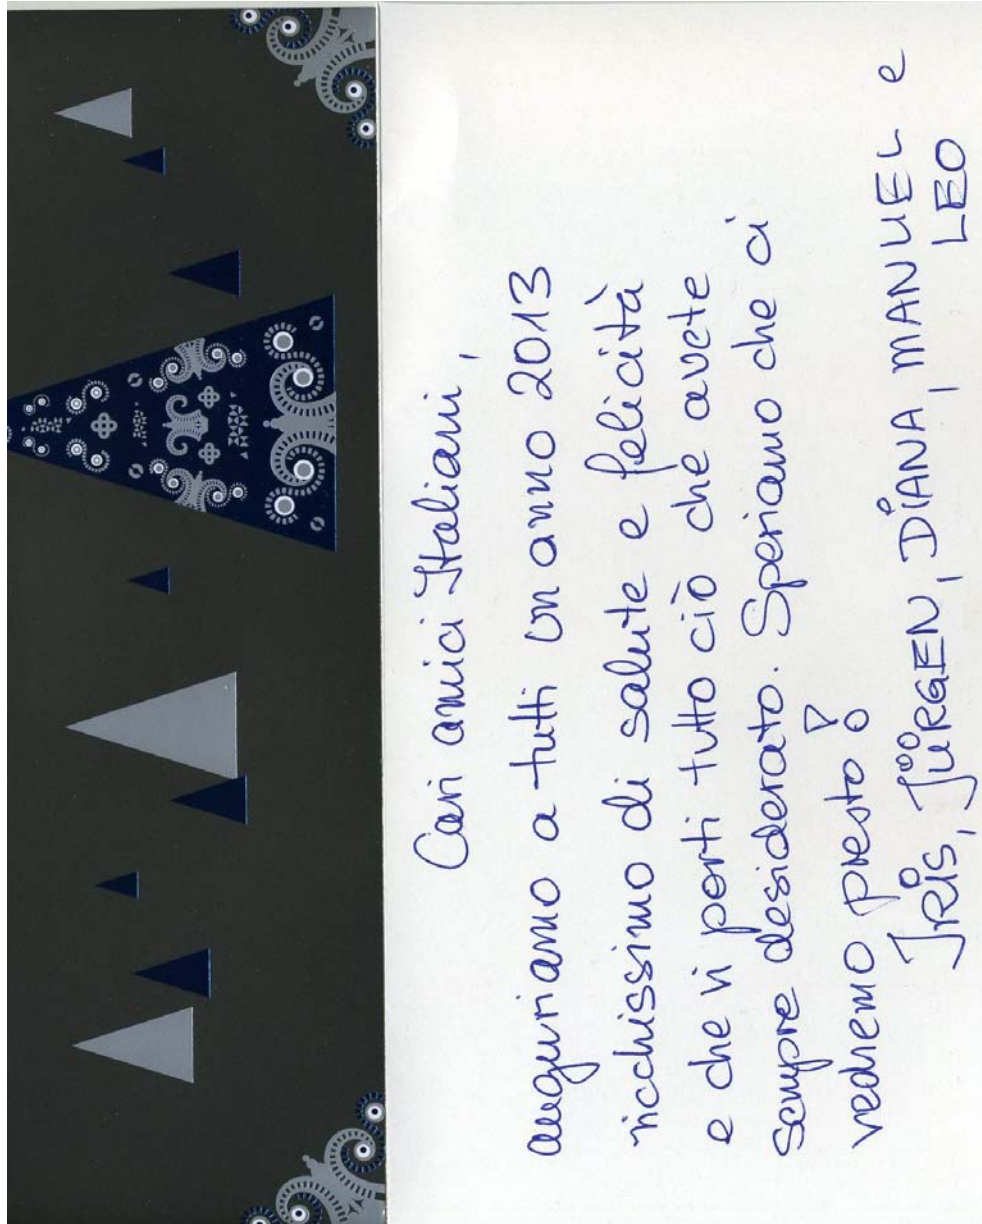 Cari amici Italiani,
auguriamo a tutti un anno 2013
ricchissimo di salute e felicità
e che vi porti tutto ciò che avete
sempre desiderato. Speriamo che ci
vedremo presto!
IRIS, JÜRGEN, DIANA, MANUEL e
LEO